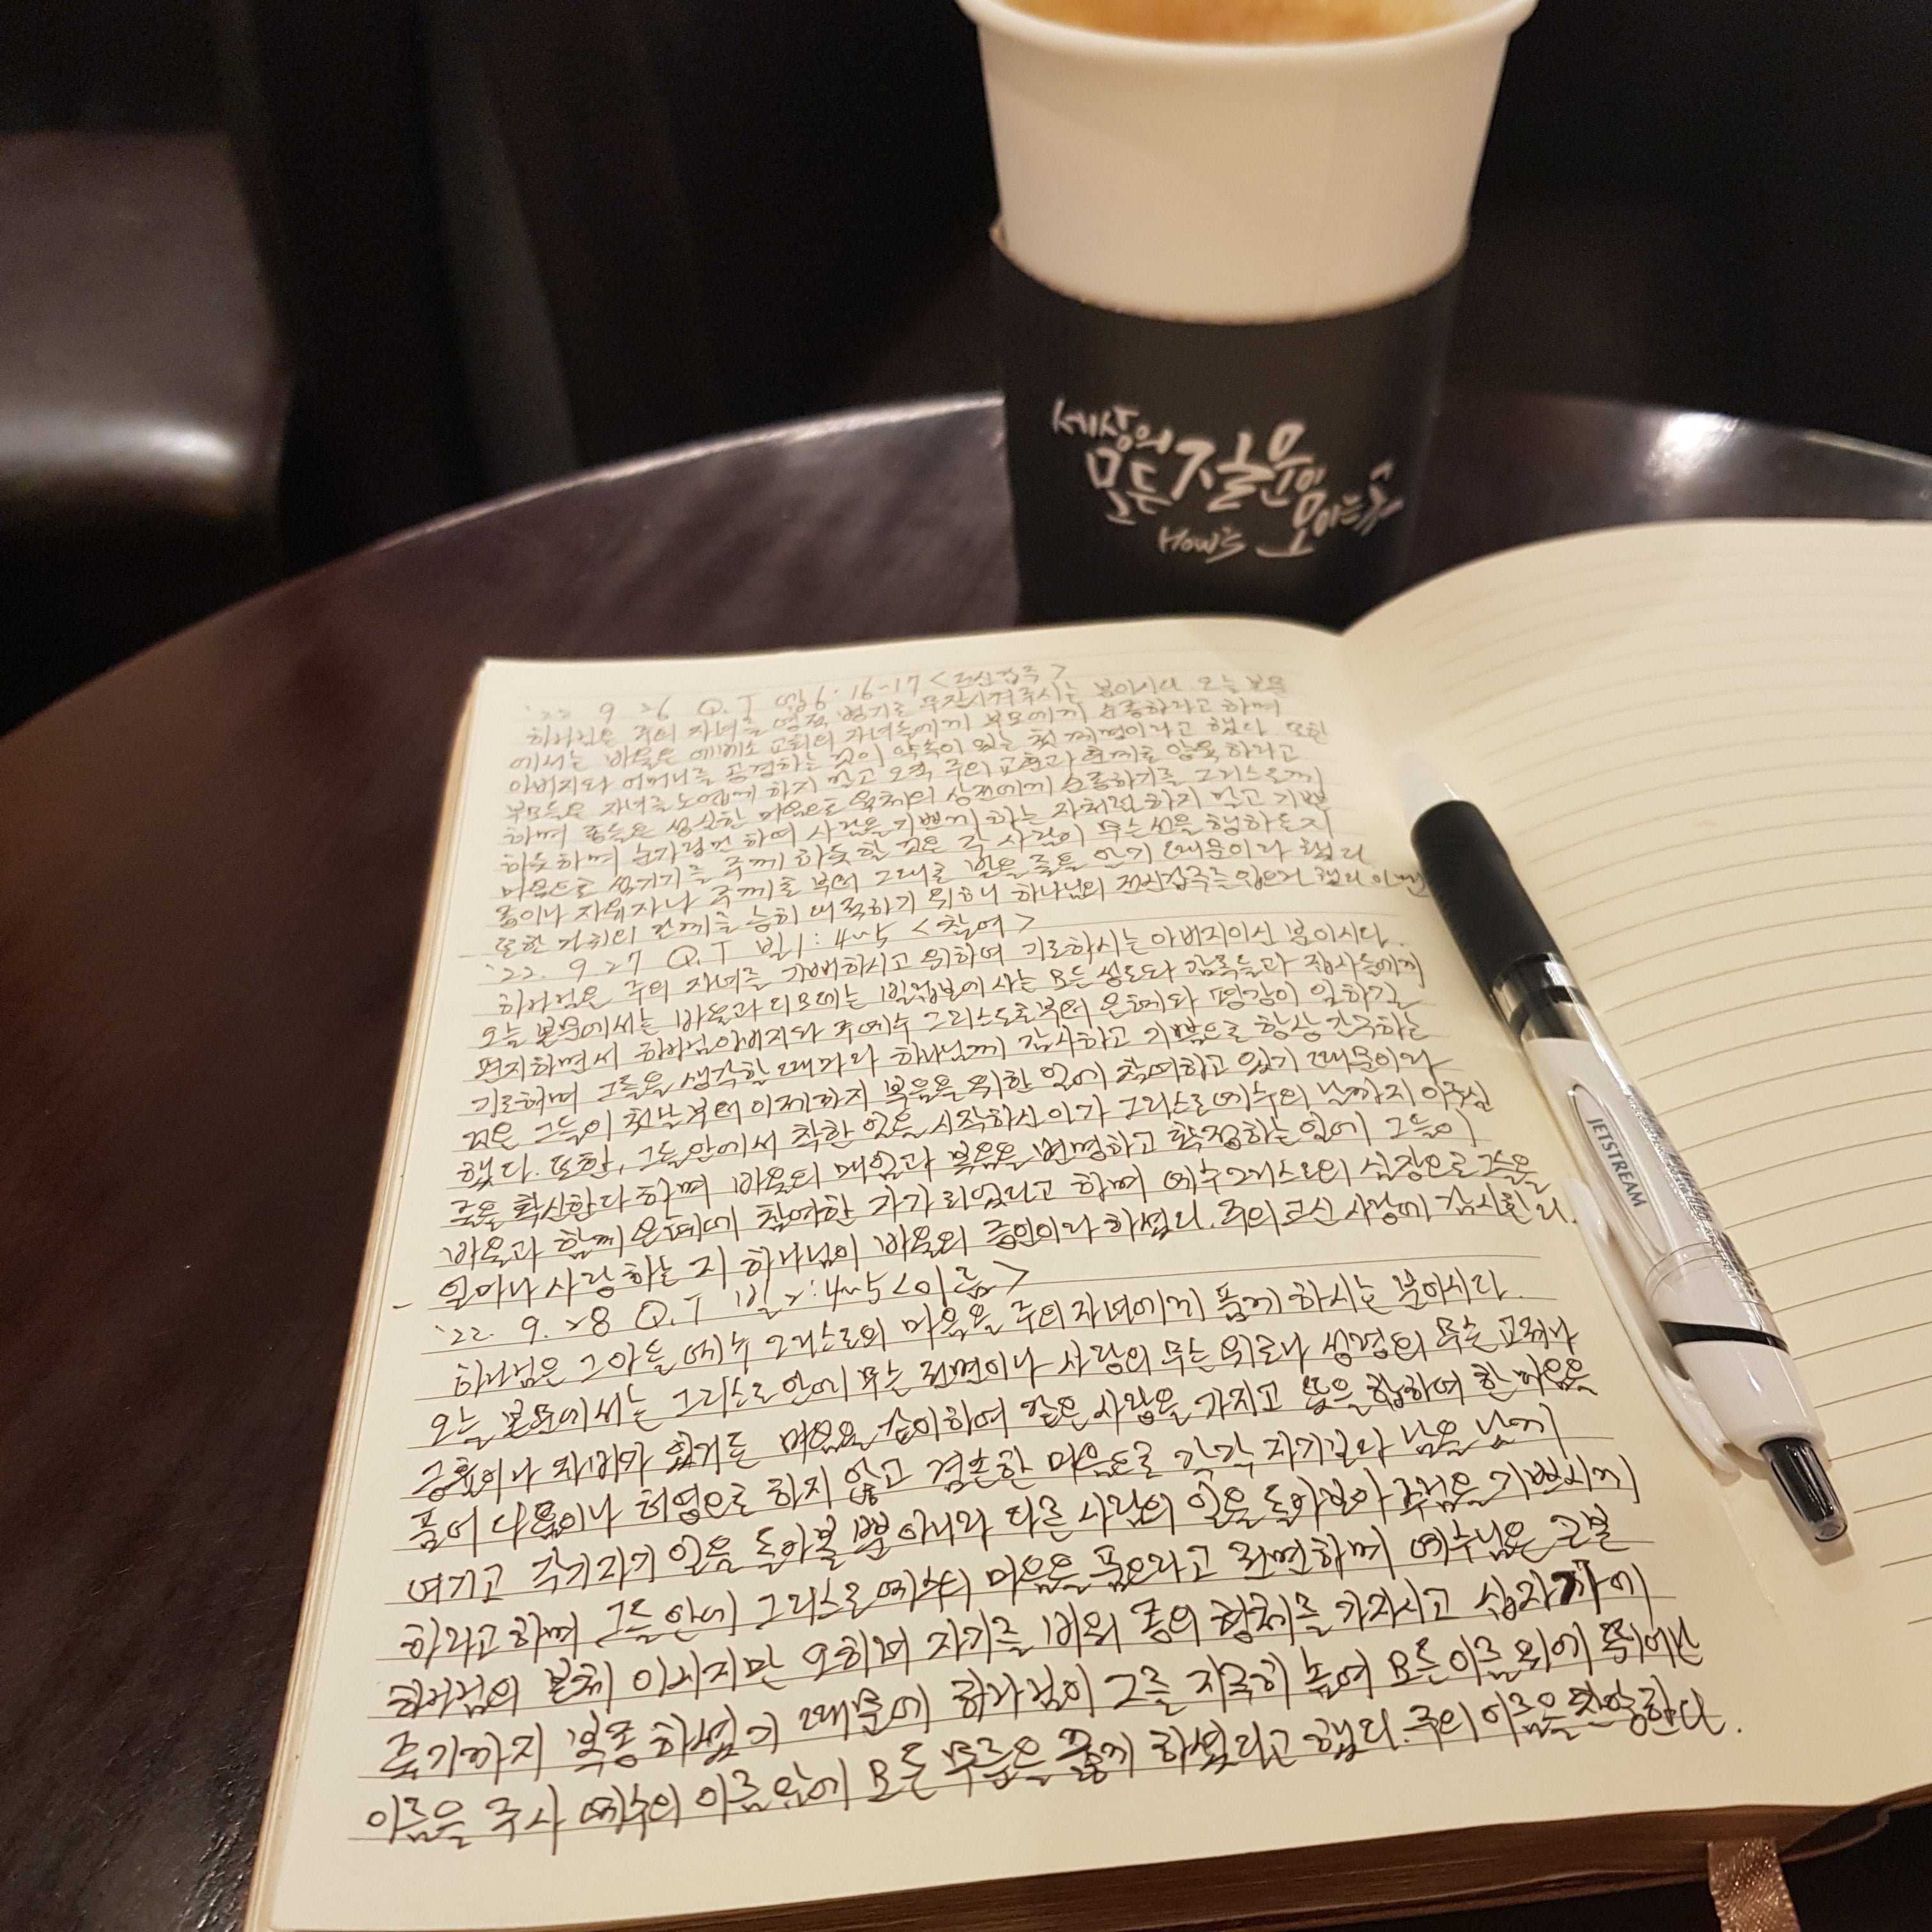 세상의
모든 질문이
모이는 곳
How's
'22 9 26 Q.T 엡6:16~17 <전신갑주>
하나님은 주의 자녀를 영적 병기로 무장시켜주시는 분이시다. 오늘 본문
에서는 바울은 에베소 교회의 자녀들에게 부모에게 순종하라고 하며
아버지와 어머니를 공경하는 것이 약속이 있는 첫 계명이라고 했다. 또한
부모들은 자녀를 노엽게 하지 말고 오직 주의 교훈과 훈계로 양육 하라고
하며 종들은 성실한 마음으로 육체의 상전에게 순종하기를 그리스도께
하듯하며 눈가림만 하여 사람을 기쁘게 하는 자처럼 하지 말고 기쁜
마음으로 섬기기를 주께 하듯 할 것은 각 사람이 무슨 선을 행하든지
종이나 자유자나 주께로 부터 그대로 받을 줄을 알기 때문이라 했다.
또한 마귀의 간계를 능히 대적하기 위하여 하나님의 전신갑주를 입으라 했다
'22. 9 27 Q.T 빌1:4~5 <참여>
하나님은 주의 자녀를 기뻐하시고 위하여 기도하시는 아버지이신 분이시다.
오늘 본문에서는 바울과 디모데는 빌립보에 사는 모든 성도와 감독들과 집사들에게
편지하면서 하나님아버지와 주예수 그리스도로부터 은혜와 평강이 임하길
기도하며 그들을 생각할 때마다 하나님께 감사하고 기쁨으로 항상 간구하는
것은 그들이 첫날부터 이제까지 복음을 위한 일에 참여하고 있기 때문이라
했다. 또한, 그들안에서 착한 일을 시작하신 이가 그리스도예수의 날까지 이루실
줄을 확신한다 하며 바울의 매임과 복음을 변명하고 확정하는 일에 그들이
바울과 함께 은혜에 참여한 자가 되었다고 하며 예수그리스도의 심장으로 그들을
얼마나 사랑 하는 지 하나님이 바울의 증인이라 하셨다. 주의 크신 사랑에 감사한다.
'22. 9. 28 Q.T 빌2:4~5 <이름>
하나님은 그 아들 예수 그리스도의 마음을 주의 자녀에게 품게 하시는 분이시다.
오늘 본문에서는 그리스도안에 무슨 권면이나 사랑의 무슨 위로나 성령의 무슨 교제나
긍휼이나 자비가 있거든 마음을 같이하여 같은 사랑을 가지고 뜻을 합하여 한 마음을
품어 다툼이나 허영으로 하지 않고 겸손한 마음으로 각각 자기보다 남을 낫게
여기고 각기 자기 일을 돌아볼 뿐 아니라 다른 사람의 일을 돌아보아 주님을 기쁘시게
하라고 하며 그들 안에 그리스도 예수의 마음을 품으라고 권면하며 예수님은 근본
하나님의 본체 이시지만 오히려 자기를 비워 종의 형체를 가지시고 십자가에
죽기까지 복종 하셨기 때문에 하나님이 그를 지극히 높여 모든 이름 위에 뛰어난
이름을 주사 예수의 이름 앞에 모든 무릎을 꿇게 하셨다고 했다. 주의 이름을 찬양한다.
JETSTREAM